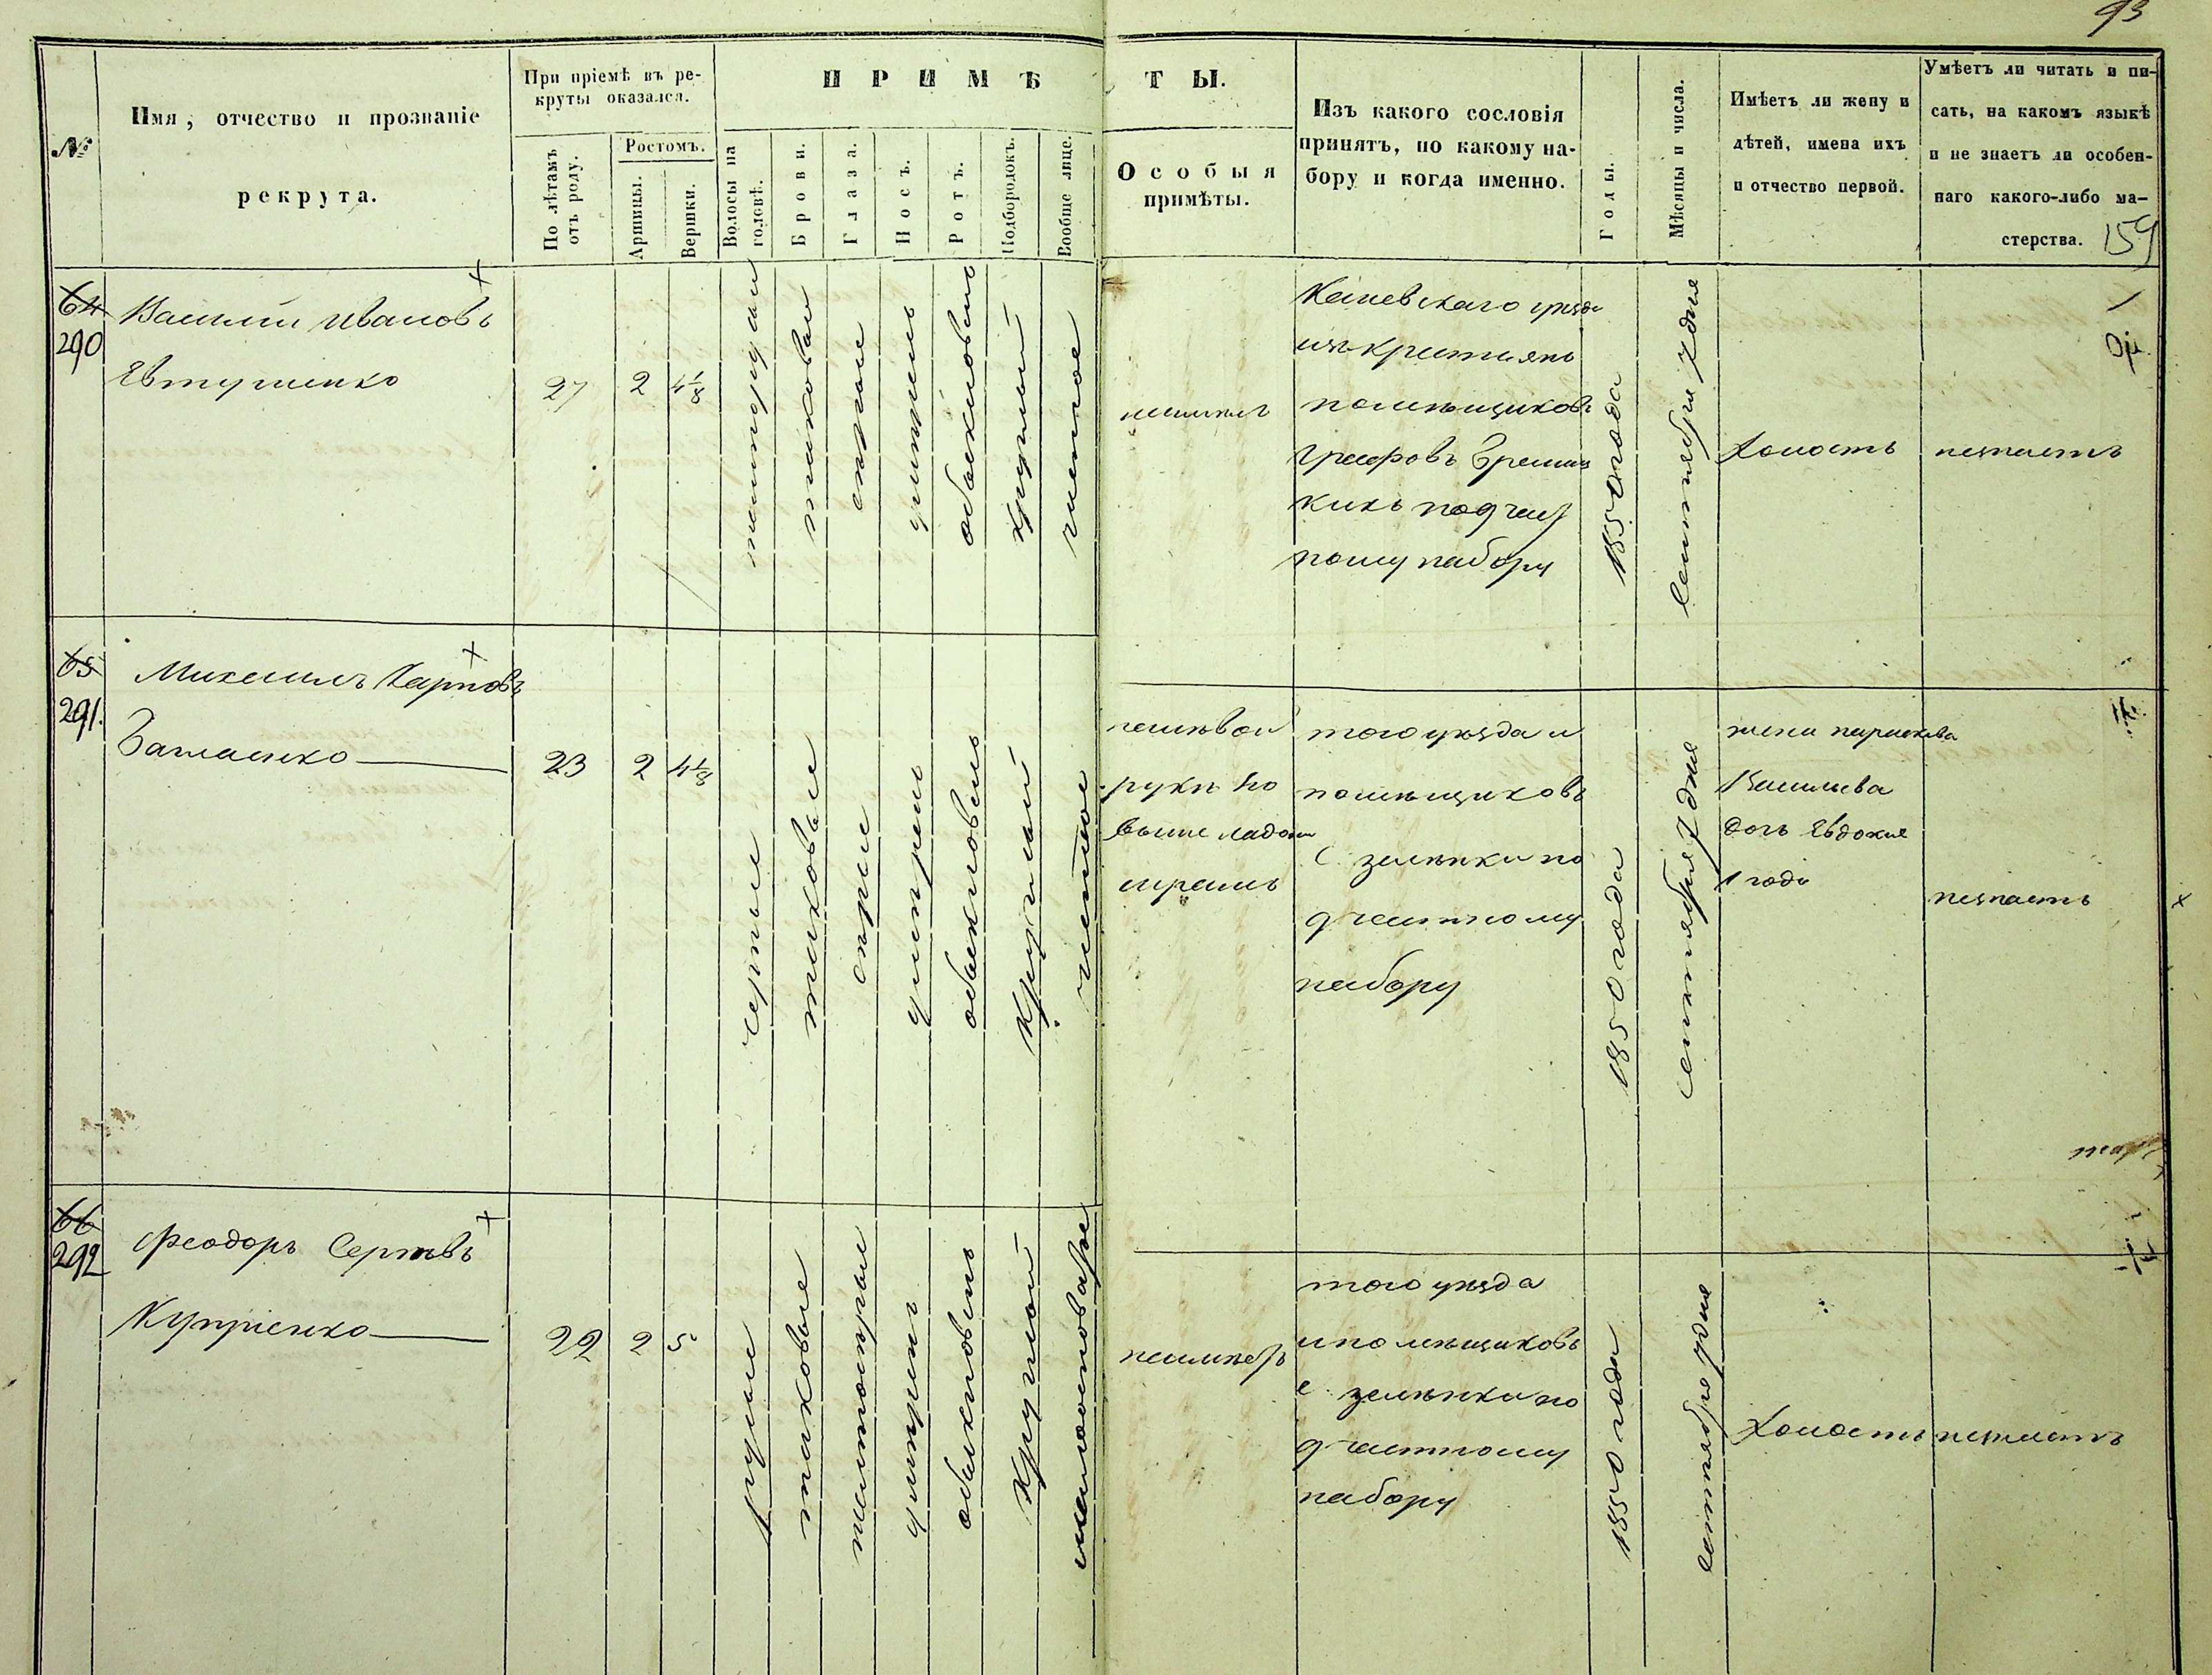 93
№
Имя, отчество и прозваніе
рекрута.
При пріемѣ въ ре-
круты оказался.
По лѣтамъ
отъ роду.
Ростомъ.
Аршины.
Вершки.
ПРИМѢ
ТЫ.
Волосы на
головѣ.
Брови.
Глаза.
Носъ.
Ротъ.
Подбородокъ.
Вообще лице.
Особыя
примѣты.
Изъ какого сословія
принятъ, по какому на-
бору и когда именно.
Годы.
Мѣсяцы и числа.
Имѣетъ ли жену и
дѣтей, имена ихъ
и отчество первой.
Умѣетъ ли читать и пи-
сать, на какомъ языкѣ
и не знаетъ ли особен-
наго какого-либо ма-
стерства.
159
64
290
Василий Ивановъ
Евтушенко
27
2
4 1/8
таковыи
обыкновенъ
круглый
чистое
Каневскаго уѣзда
изъ крестьянъ
помѣщиковъ
Графовъ
набору
1850 года
сентября 7 дня
Холостъ
незнаетъ
65
291.
Михаилъ Карповъ
23
2
4 1/8
таковые
сѣрые
обыкновенъ
Круглый
чистое
на лѣвой
рукѣ по
выше ладони
шрамъ
того уѣзда и
помѣщиковъ
с. зеленьки по
д частному
набору
1850 года
сентября 7 дня
жена параскева
Васильева
дочь Евдокия
1 года
незнаетъ
66
292
Феодоръ Сергѣевъ
Купріенко
22
2
5
русые
таковые
обыкновенъ
Круглый
того уѣзда
и помѣщиковъ
с. зеленьки по
д частному
набору
1850 года
сентября 7 дня
Холостъ
незнаетъ